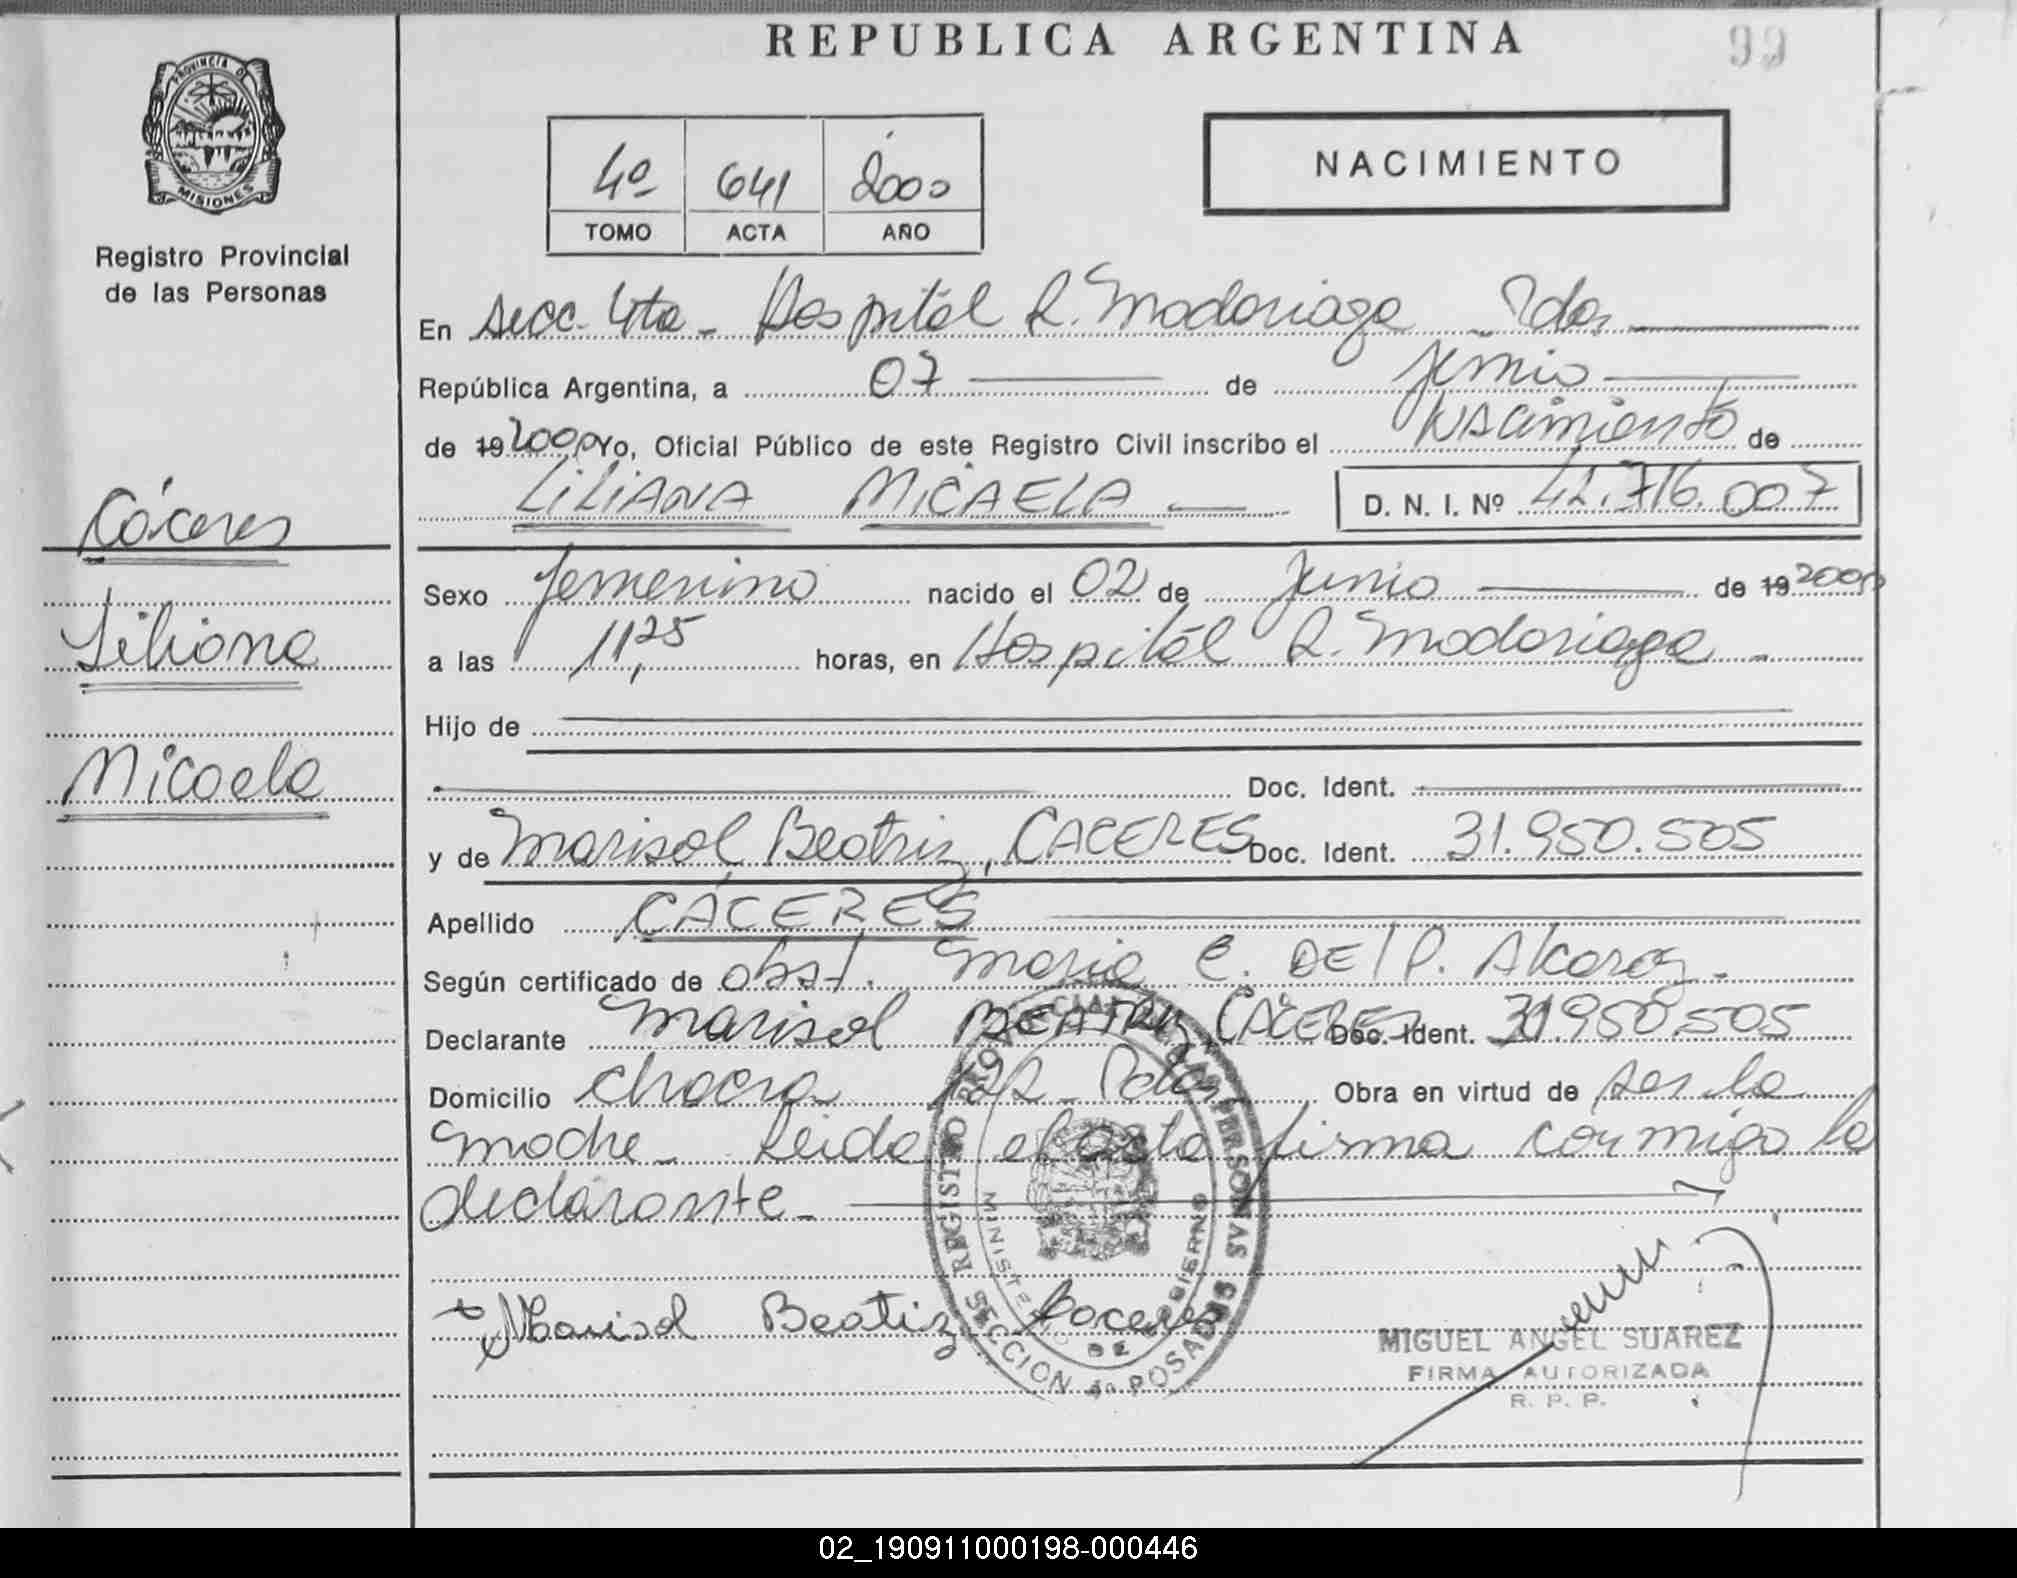 REPUBLICA ARGENTINA
99
PROVINCIA DE
MISIONES
Registro Provincial
de las Personas
4º 641 2000
TOMO ACTA AÑO
NACIMIENTO
En Secc. 4ta - Hospital R. Madariaga - Pdas
República Argentina, a 07 de Junio
de 19 2000 Yo, Oficial Público de este Registro Civil inscribo el Nacimiento de
LILIANA MICAELA D. N. I. Nº 42.716.007
Cáceres
Liliana
Micaela
Sexo femenino nacido el 02 de Junio de 19 2000
a las 11,25 horas, en Hospital R. Madariaga -
Hijo de
Doc. Ident.
y de Marisol Beatriz, CACERES Doc. Ident. 31.950.505
Apellido CÁCERES
Según certificado de obst. Maria C. DEL P. Alcaraz -
Declarante Marisol BEATRIZ CÁCERES Doc. Ident. 31.950.505
Domicilio chacra Pdas Obra en virtud de ser la
madre - Leida el acta firma conmigo la
declarante -
Marisol Beatriz Caceres
REGISTRO PROVINCIAL DE LAS PERSONAS
MINISTERIO DE GOBIERNO
SECCION 4a POSADAS
MIGUEL ANGEL SUAREZ
FIRMA AUTORIZADA
R. P. P.
02_190911000198-000446